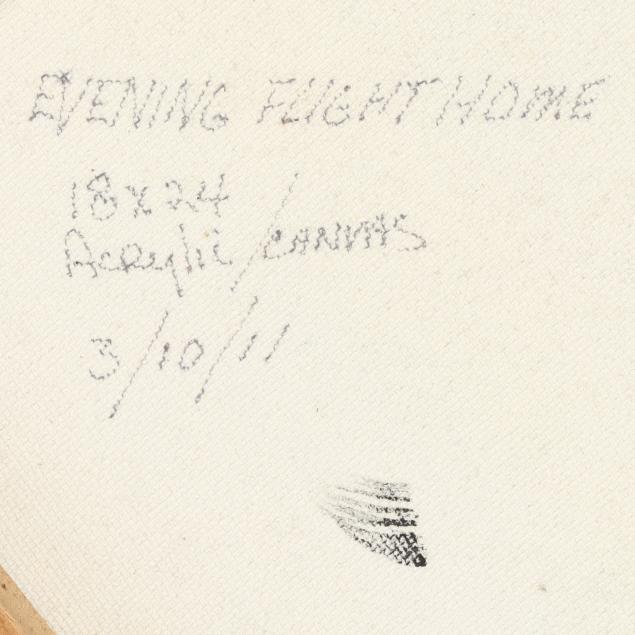 EVENING FLIGHT HOME
18x24
Acrylic / CANVAS
3/10/11